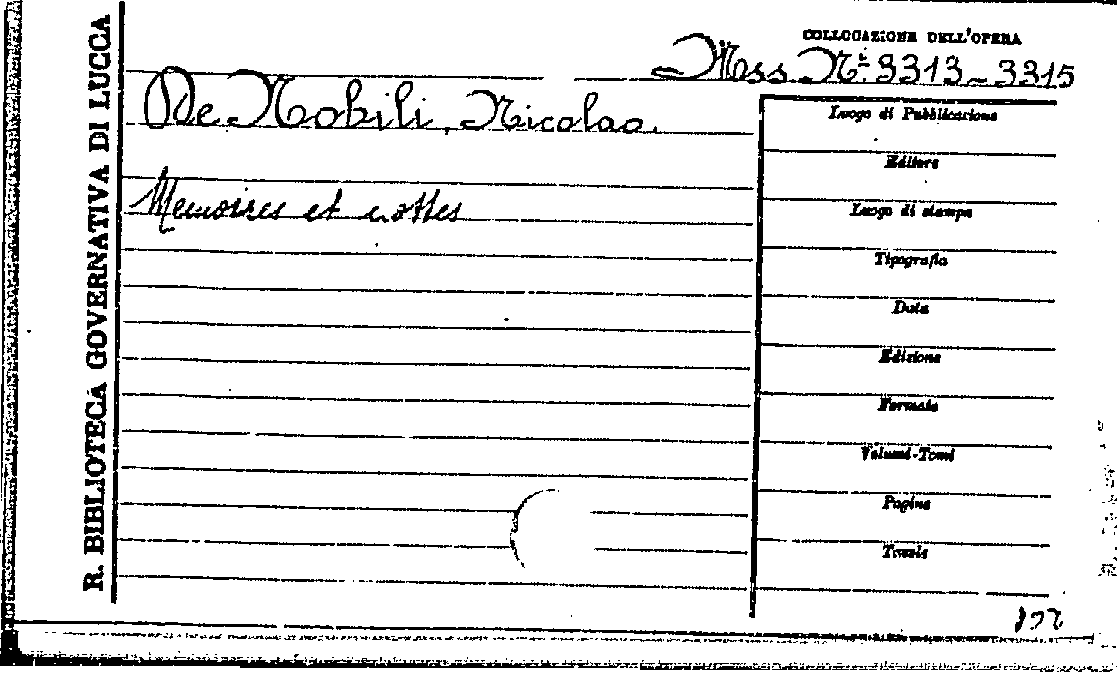 R. BIBLIOTECA GOVERNATIVA DI LUCCA
COLLOCAZIONE DELL'OPERA
Mss. Nⁱ 3313-3315
De Nobili, Nicolao.
Memoires et nottes
Luogo di Pubblicazione
Editore
Luogo di stampa
Tipografia
Data
Edizione
Formato
Volumi-Tomi
Pagine
Tavole